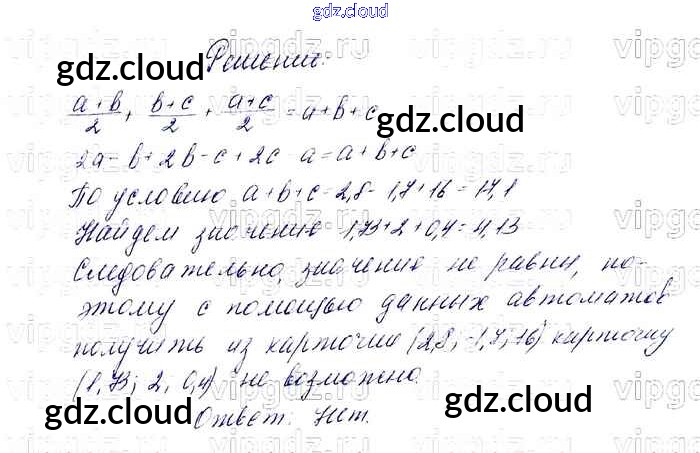 gdz.cloud
Решение:
(a+b)/2 + (b+c)/2 + (a+c)/2 = a+b+c
2a-b+2b-c+2c-a=a+b+c
По условию a+b+c=2,8-1,7+16=17,1
Найдем значение 1,73+2+0,4=4,13
Следовательно, значение не равны, по-
этому с помощью данных автоматов
получить из карточки (2,8; -1,7; 16) карточку
(1,73; 2; 0,4) не возможно.
Ответ: Нет.
gdz.cloud
gdz.cloud
gdz.cloud
gdz.cloud
vipgdz.ru
vipgdz.ru
vipgdz.ru